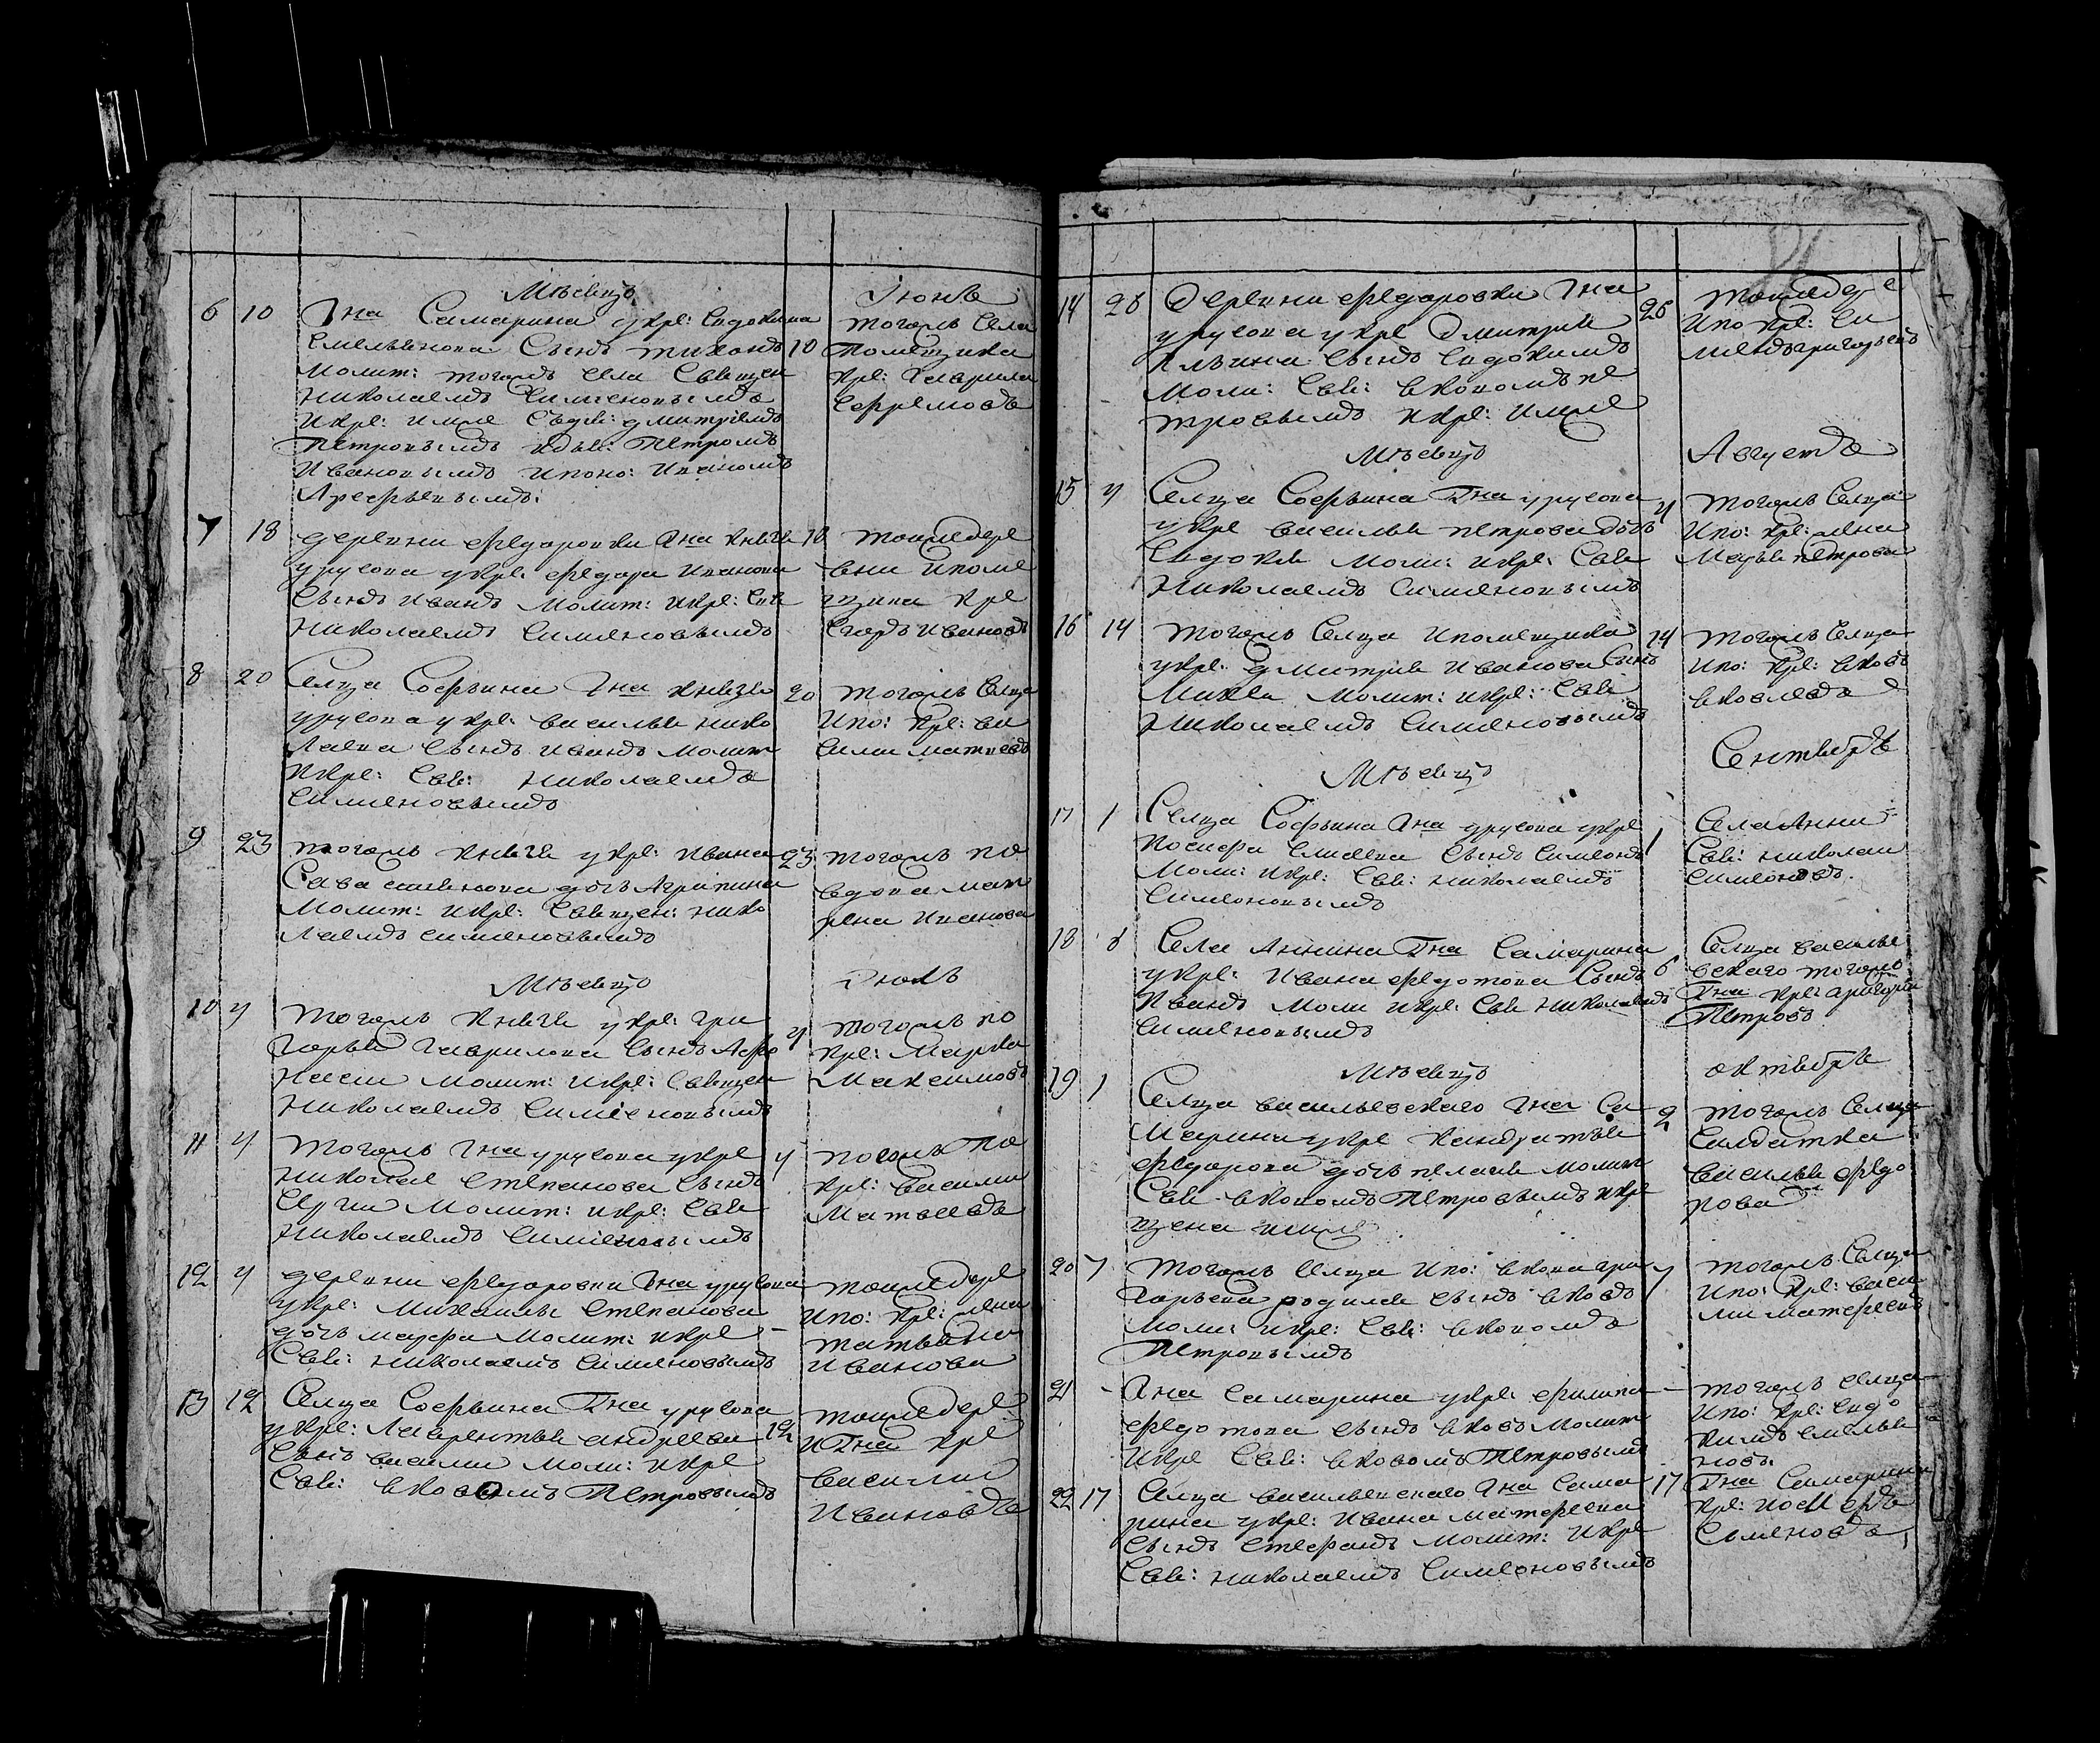 Мѣсяцъ Июнь
6 10 Гна Самарина у кре: Евдокима
Емельянова сынъ тихонъ
молит: тогожъ села Священ
Николаемъ Симеоновымъ
и кре: имже съдья: дмитріемъ
Петровымъ и дья: Петромъ
Ивановымъ и поно: Иваномъ
Арефьевымъ:
10 тогожъ села
Помещика
кре: Гаврила
Ефремовъ
7 18 деревни федоровки Гна Князя
урусова у кре: федора Иванова
сынъ Иванъ молит: и кре: Свя
Николаемъ Симеоновымъ
18 тоижедере
вни и поме
щика кре
Егоръ Ивановъ
8 20 Селца Софьина Гна князя
урусова у кре: василья нико
лаева сынъ иванъ молит
и кре: Свя: Николаемъ
Симеоновымъ
20 тогожъ Селца
и по: кре: ва
сили матвевъ
9 23 тогожъ Князя у кре: Ивана
Савастьянова дочь Агрипина
молит: и кре: Священ: нико
лаемъ симеоновымъ
23 тогожъ по
вдова мат
рена Иванова
Мѣсяцъ Июль
10 4 тогожъ Князя у кре: гри
горья гаврилова сынъ Афо
насеи молит: и кре: Священ
Николаемъ Симеоновымъ
4 тогожъ по
кре: Марка
Максимовъ
11 4 тогожъ Гна урусова у кре
николае Степанова сынъ
Сергии молит: и кре: Свя
николаемъ Симеоновымъ
4 тогожъ по
кре: василии
Матвеевъ
12 4 деревни федоровки Гна урусова
у кре: Михаилы Степанова
дочь марфа молит: и кре
Свя: николаемъ Симеоновымъ
тоижедере
и по: кре: жена
татьяна
Иванова
13 12 Селца Софьина Гна урусова
у кре: Лаврентья андреева
сынъ василии моли: и кре
Свя: яковомъ Петровымъ
12 тоижедере
и Гна кре
василии
Ивановъ
14 26 Деревни федоровки Гна
урусова у кре Дмитрия
Ильина сынъ Евдокимъ
моли: Свя: яковомъ пе
тровымъ и кре: имже
26 тоижеде
и по кре: Си
меонъ григорьевъ
Мѣсяцъ Августъ
15 4 Селца Софьина Гна урусова
у кре василья петрова дочь
Евдокия моли: и кре: Свя
Николаемъ Симеоновымъ
4 тогожъ Селца
и по: кре: жена
Марья петрова
16 14 тогожъ Селца и помещика
у кре: дмитрия Иванова сынъ
Михея молит: и кре: Свя
Николаемъ Симеоновымъ
14 тогожъ Селца
и по: кре: яковъ
яковлевъ
Мѣсяцъ Сентябрь
17 1 Селца Софьина Гна урусова у кре
Иосифа елисеева сынъ Симеонъ
моли: и кре: Свя: николаемъ
Симеоновымъ
1 Села Анни
Свя: николаи
симеоновъ.
18 6 Села Аннина Гна Самарина
у кре: Ивана федотова сынъ
Иванъ моли и кре: Свя николаемъ
Симеоновымъ
6 Селца василье
вскаго тогожъ
Гна кре: григории
Петровъ
Мѣсяцъ октябрь
19 1 Селца васильевскаго Гна Са
марина у кре Кандратья
федорова дочь пелагея молит
Свя яковомъ Петровымъ и кре
щена имже
2 тогожъ Селца
Салдатка
василья федо
рова
20 7 тогожъ селца и по: якова гри
горьева родился сынъ яковъ
моли: и кре: Свя: яковомъ
Петровымъ
7 тогожъ Селца
и по: кре: васи
ли матфеевъ
21 - Гна Самарина у кре: филипа
федотова сынъ яковъ молит
и кре Свя: яковомъ Петровымъ
тогожъ селца
и по: кре: евдо
кимъ емелья
новъ.
22 17 Селца васильевскаго Гна Сама
рина у кре: Ивана матфеева
сынъ Стефанъ молит: и кре
Свя: николаемъ Симеоновымъ
17 Гна Самарина
кре: иосифъ
Семеновъ